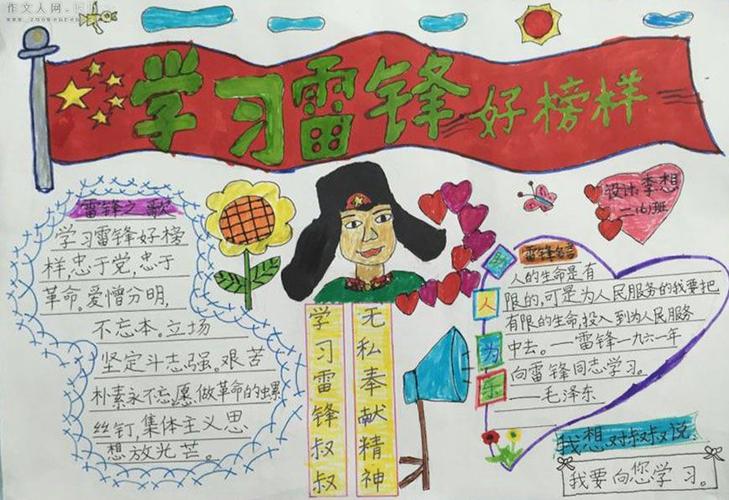 作文人网
学习雷锋好榜样
雷锋之歌
学习雷锋好榜
样,忠于党,忠于
革命。爱憎分明,
不忘本。立场
坚定斗志强。艰苦
朴素永不忘,愿做革命的螺
丝钉,集体主义思
想放光芒。
学习雷锋叔叔
无私奉献精神
助人为乐
设计:李想
二(6)班
雷锋名言
人的生命是有
限的,可是为人民服务的我要把
有限的生命,投入到为人民服务
中去。——雷锋一九六一年
向雷锋同志学习。
——毛泽东
我想对叔叔说
我要向您学习。